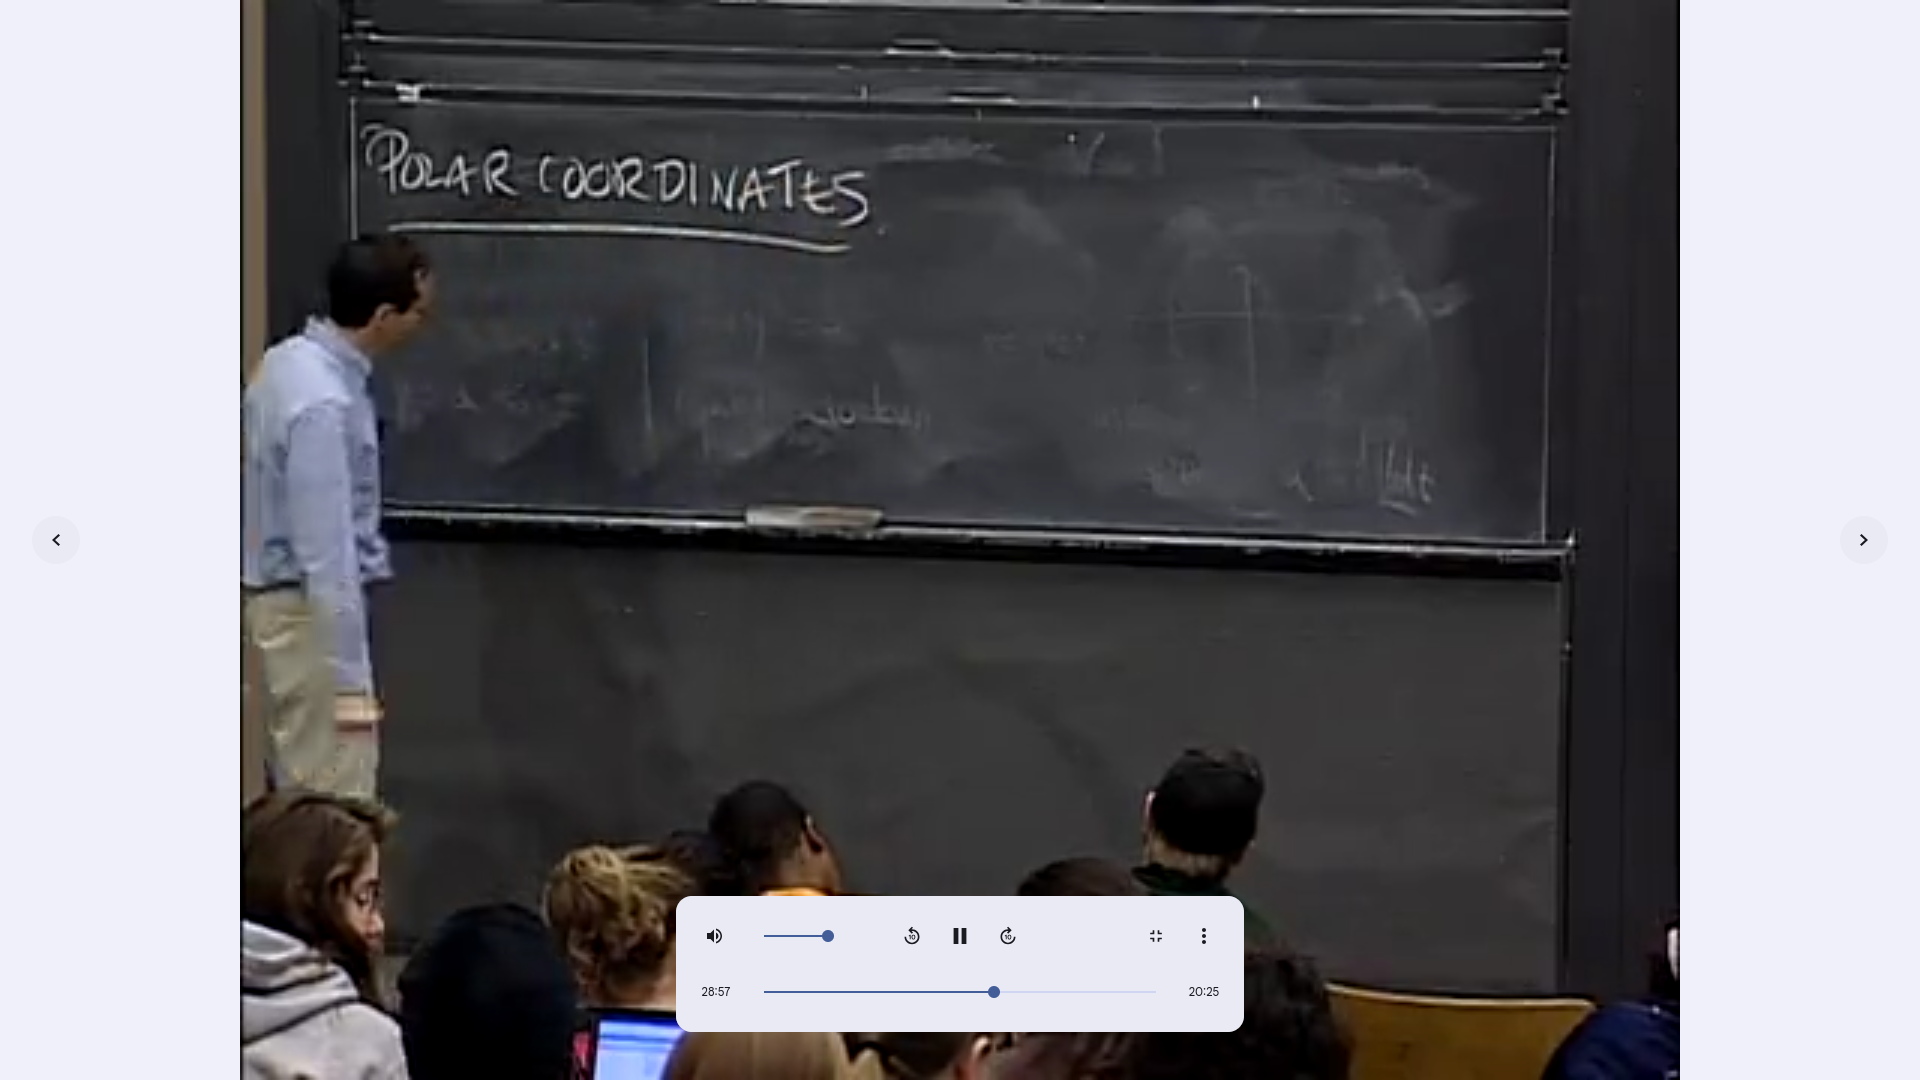 POLAR COORDINATES
10
10
28:57
20:25